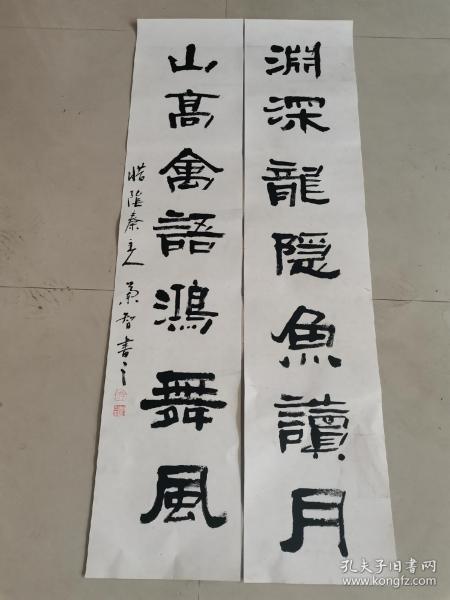 淵深龍隱魚讀月
山高禽語鴻舞風
惜陰齋主人 景智書之
孔夫子旧书网
www.kongfz.com